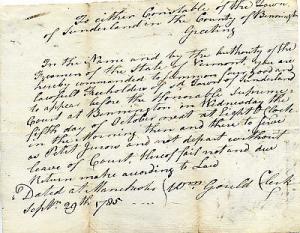 To either Constable of the Town
of Sunderland in the County of Bennington
Greeting
In the Name and by the Authority of the
Freemen of the State of Vermont, you are
hereby commanded to summon four good and
lawfull Freeholders of Town of Sunderland
to appear before the Honourable Supreme
Court at Bennington on Wednesday the
fifth day of October next at Eight o Clock
in the Morning then and there to serve
as Petit Jurors and not depart without
leave of Court thereof fail not and due
Return make according to Law
Dated at Manchester Wm Gould Clerk
Septr 29th 1785